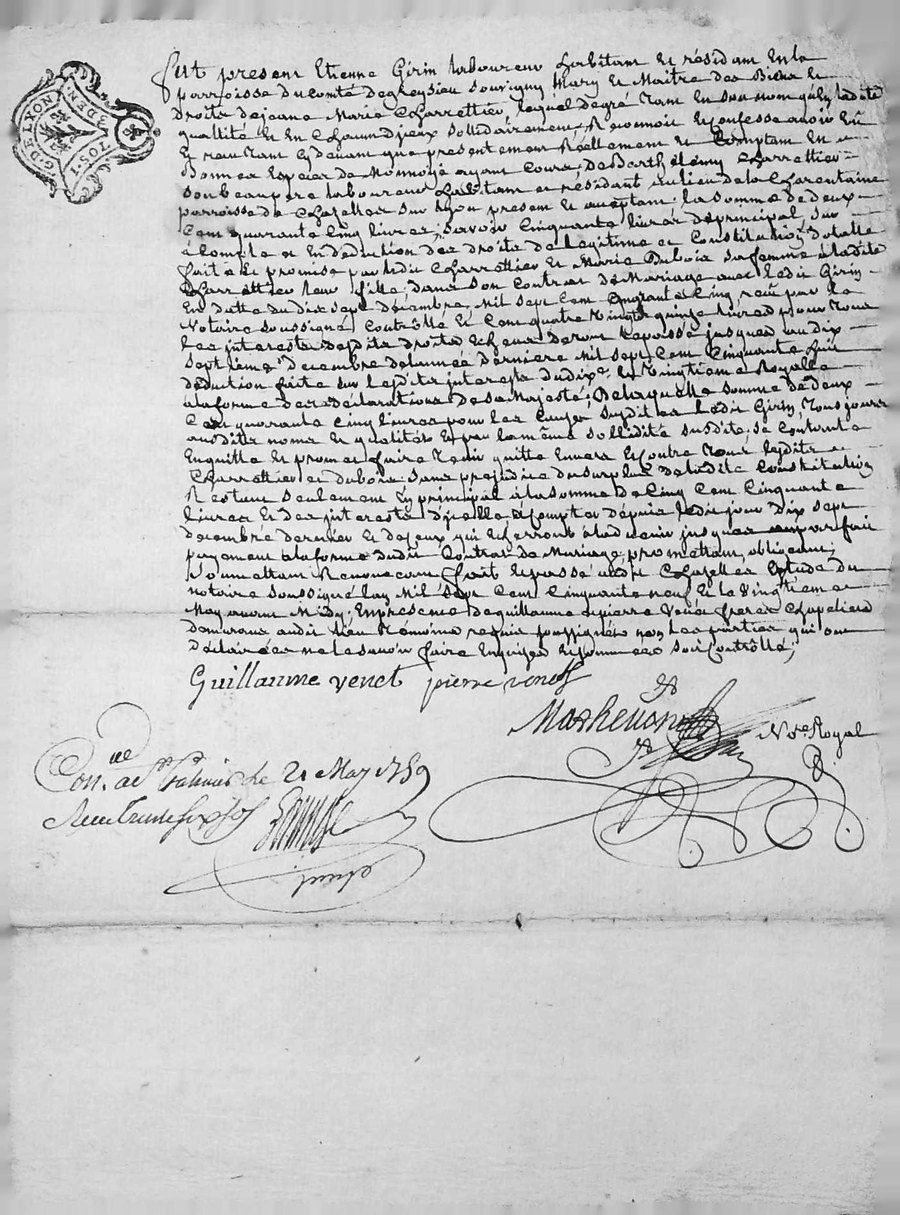 G. DE LYON.
3 DEN.
Fut present Etienne Girin laboureur habitant et résidant en la
parroisse du comté de Souvigny Mary et Maitre des Biens et
Droits de jeanne Marie Charrettier, lequel de gré tant en son nom qu'en ladite
quallité et en chacun d'jeux sollidairement, Reconnoit et confesse avoir eü
et reçu tant cy devant que presentement Réellement et Comptant en
Bonnes Espèces de Monnoye ayant Cours, de Barthélémy Charrettier
son beaupere laboureur habitant et résidant au lieu de la Charentaine
parroisse de Chazelles sur Lyon present et acceptant la somme de deux
Cent quarante Cinq livres, sçavoir Cinquante livres de principal, sur
à Compte et en déduction des droits de légitime et Constitution dotalle
fait et promise par ledit Charrettier et Marie Dubois sa femme à ladite
Charrettier leur fille dans son Contrat de Mariage avec ledit Girin
en datte du dix sept décembre Mil sept cent quarante Cinq, reçu par le
Notaire soussigné Controllé et Cent quatre vingt quinze livres pour tous
les interests desdits droits Echeus depuis jusques au dix
septieme décembre de l'année derniere Mil sept Cent Cinquante huit
déduction faite sur lesdits interests du dixe. et Vingtieme Royalle
à la forme des déclarations de Sa Majesté, De laquelle somme de deux
Cent quarante cinq livres pour les Causes susdites ledit Girin, toujours
ausdits noms et qualités et par la même sollidité susdite, se contente
en quitte et promet faire tenir quitte envers et contre tous lesdits
Charrettier et dubois, sans préjudice du surplus de ladite Constitution
Restant seulement en principal à la somme de Cinq Cent Cinquante
livres et des interests d'jcelle à Compter depuis ledit jour dix sept
décembre dernier et de ceux qui écherront à l'advenir jusques au parfait
payement à la forme dudit Contrat de Mariage, promettant, obligeant,
soumettant Renonceant, fait et passé audit Chazelles Etude du
notaire soussigné l'an Mil Sept Cent Cinquante neuf et le Vingtieme
May avant Midy, En presence de guillaume et pierre Venet freres Chapeliers
demeurant audit lieu témoins requis soussignés non les parties qui ont
déclaré ne le savoir faire enquises et sommées Soit Controllé;
Guillaume venet pierre venet
Nre. Royal
Conlé. à St. Galmier le 21 May 1759
Reçu trente six sols